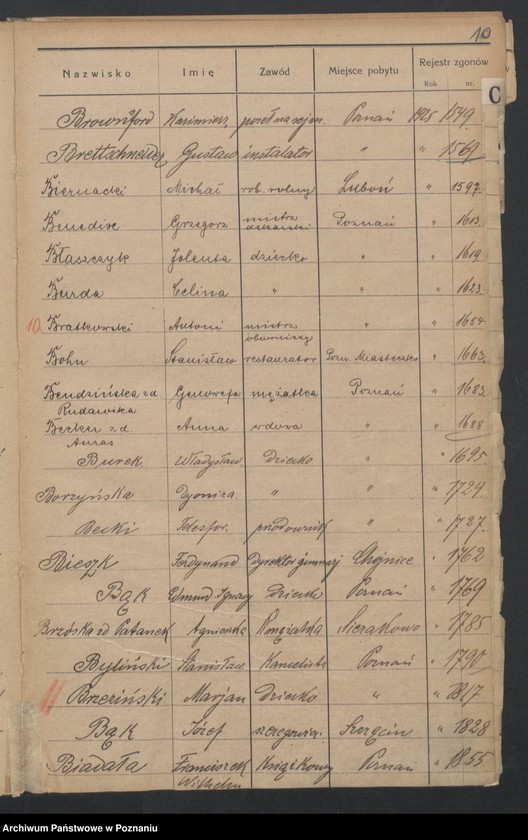 10
Nazwisko Imię Zawód Miejsce pobytu Rejestr zgonów
Rok nr.
C
Brownsford Kazimierz poseł na sejm. Poznań 1925 1549
Brettschneider Gustaw instalator " " 1569
Biernacki Michał rob. rolny Luboń " 1597
Benedix Grzegorz mistrz Poznań " 1613
Błaszczyk Jolenta dziecko " " 1619
Burda Celina " " " 1623
10. Bratkowski Antoni mistrz " " 1654
Bohn Stanisław restaurator Pozn. Miasteczko " 1663
Bendzińska zd Genowefa mężatka Poznań " 1683
Rudawska
Becker z.d. Anna wdowa " " 1688
Auras
Burek Władysław Dziecko " " 1695
Borzyńska Dyoniza " " " 1724
Becki Telesfor. przodownik " " 1727
Bieszk Ferdynand Dyrektor gimnazj Chojnice " 1762
Bąk Edmund Ignacy Dziecko Poznań " 1769
Brzóska zd Patanek Agnieszka Mężatka Sierakowo " 1785
Byliński Stanisław Kancelista Poznań " 1790
Brzeziński Marjan Dziecko " " 1817
Bąk Józef Szczecin " 1828
Biadała Franciszek Książkowy Poznań " 1855
Wilhelm
Archiwum Państwowe w Poznaniu